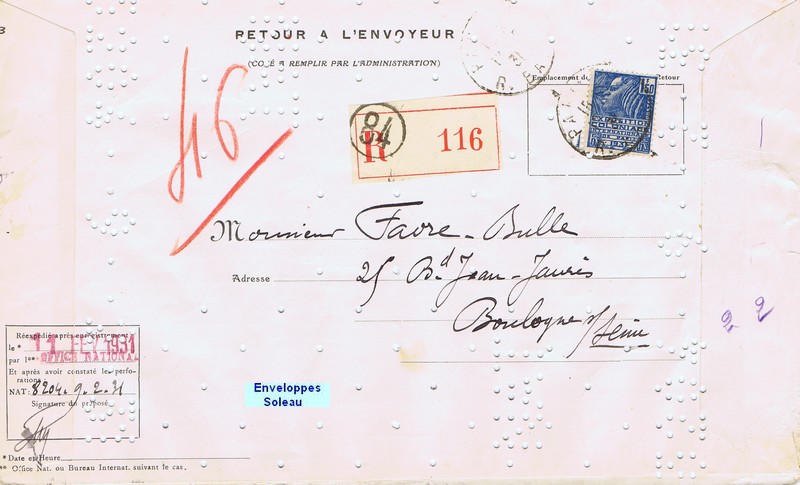 RETOUR A L'ENVOYEUR
(CÔTÉ A REMPLIR PAR L'ADMINISTRATION)
Emplacement de Retour
1F50
EXPOSITION
COLONIALE
INTERNATIONALE
46
84
R 116
Monsieur Favre-Bulle
Adresse 25 Bd Jean-Jaurès
Boulogne s/Seine
2 2
Réexpédié après enregistrement
le * 11 FEV 1931
par l'** OFFICE NATIONAL
Et après avoir constaté les perfo-
rations
NAT: 8204. 9.2.31
Signature du préposé
* Date en Heure
** Office Nat. ou Bureau Internat. suivant le cas.
Enveloppes
Soleau